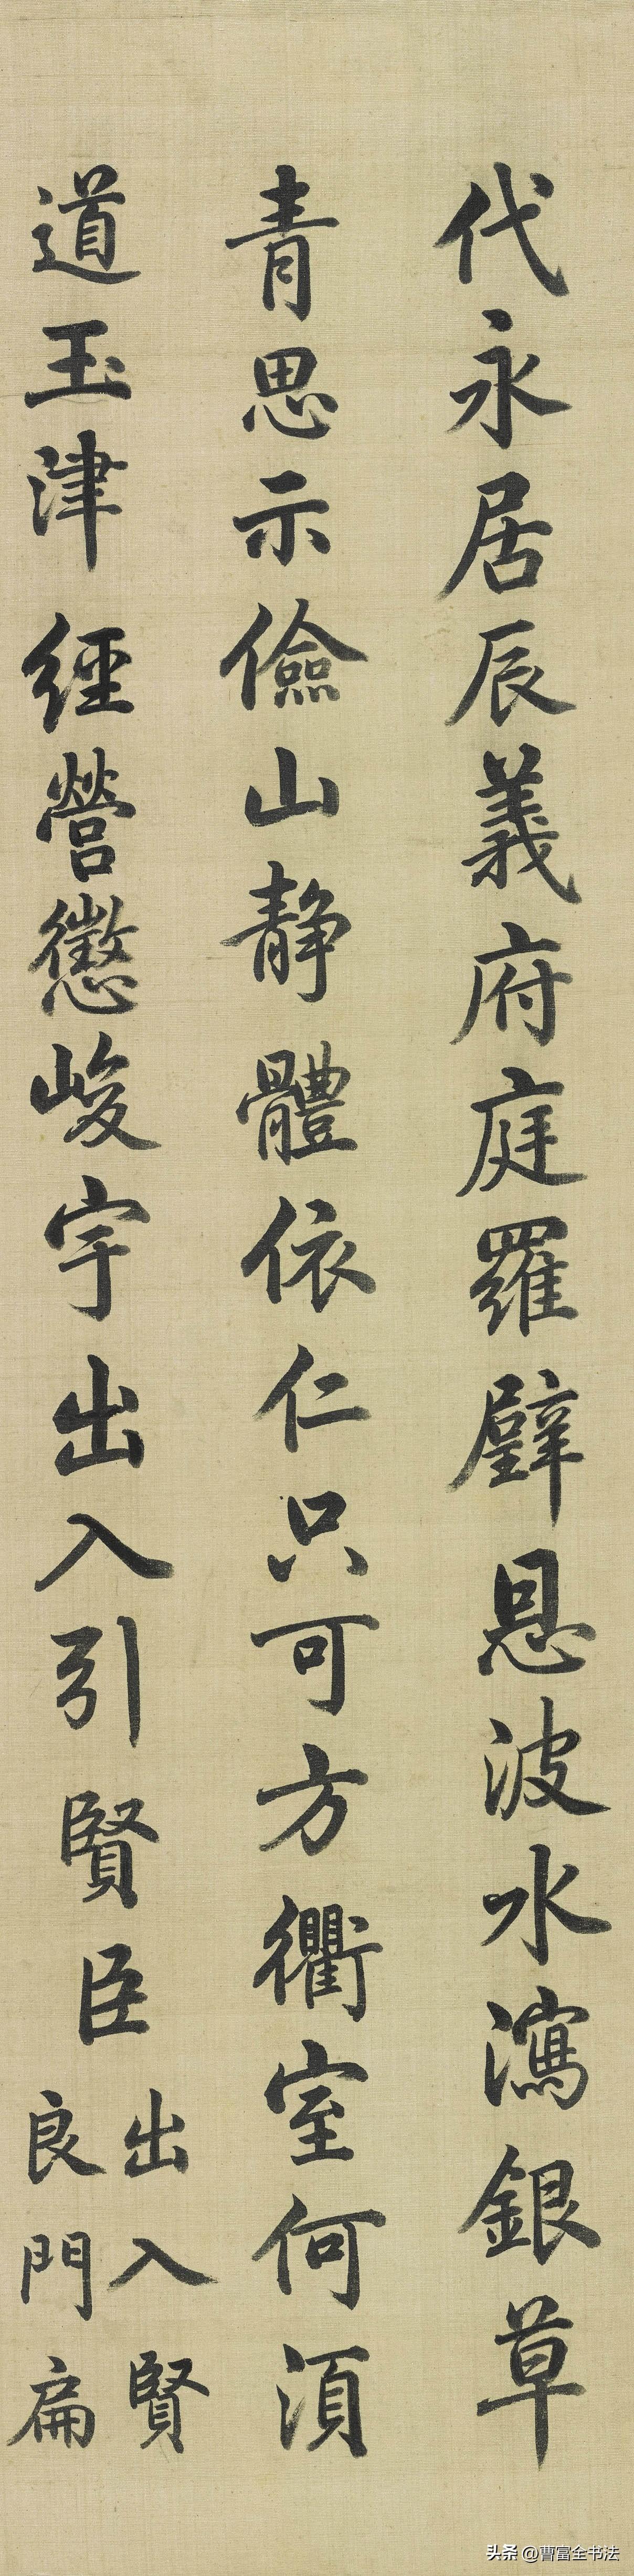 代永居辰義府庭羅璧恩波水瀉銀草
青思示儉山静體依仁只可方衢室何須
道玉津經營懲峻宇出入引賢臣
出入賢
良門扁
头条 @曹富全书法